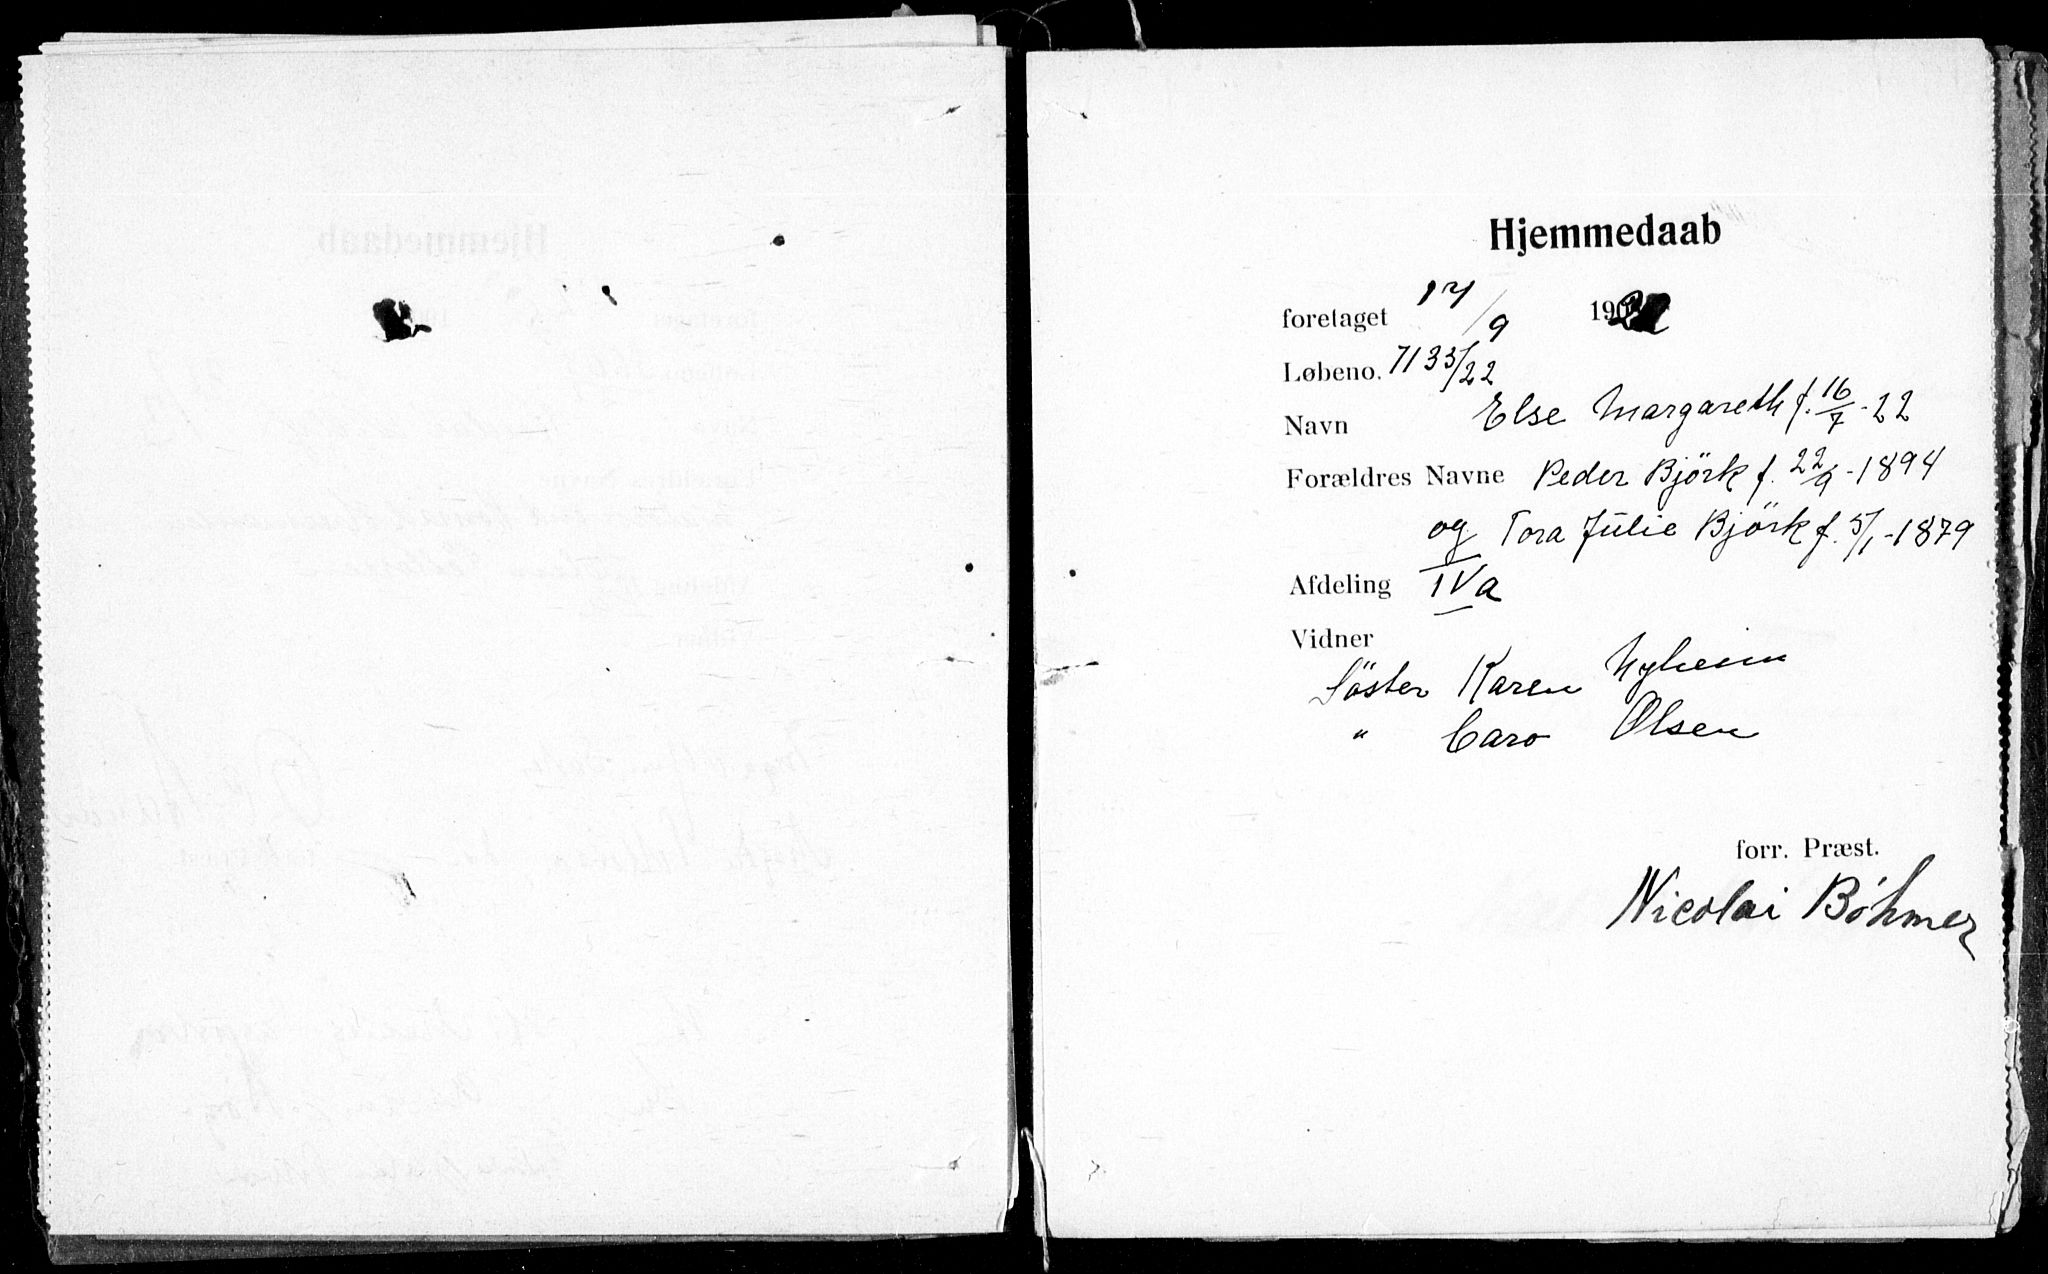 Hjemmedaab
foretaget 17/9 1922
Løbeno. 7133/22
Navn Else Margareth f. 16/7-22
Forældres Navne Peder Björk f. 22/9-1894
og Tora Julie Björk f. 5/1-1879
Afdeling IVa
Vidner
Söster Karen Nyheim
" Caro Olsen
forr. Præst.
Nicolai Bøhmer